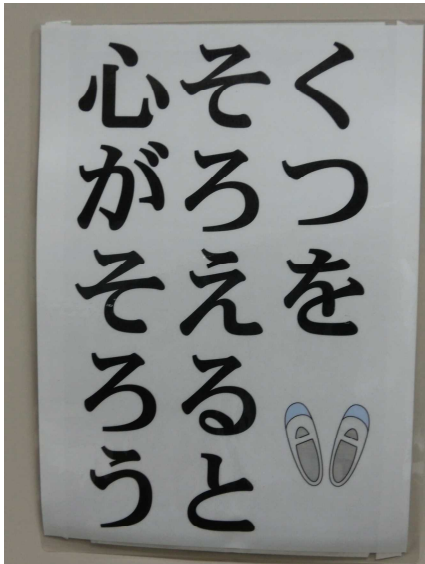 くつを
そろえると
心がそろう